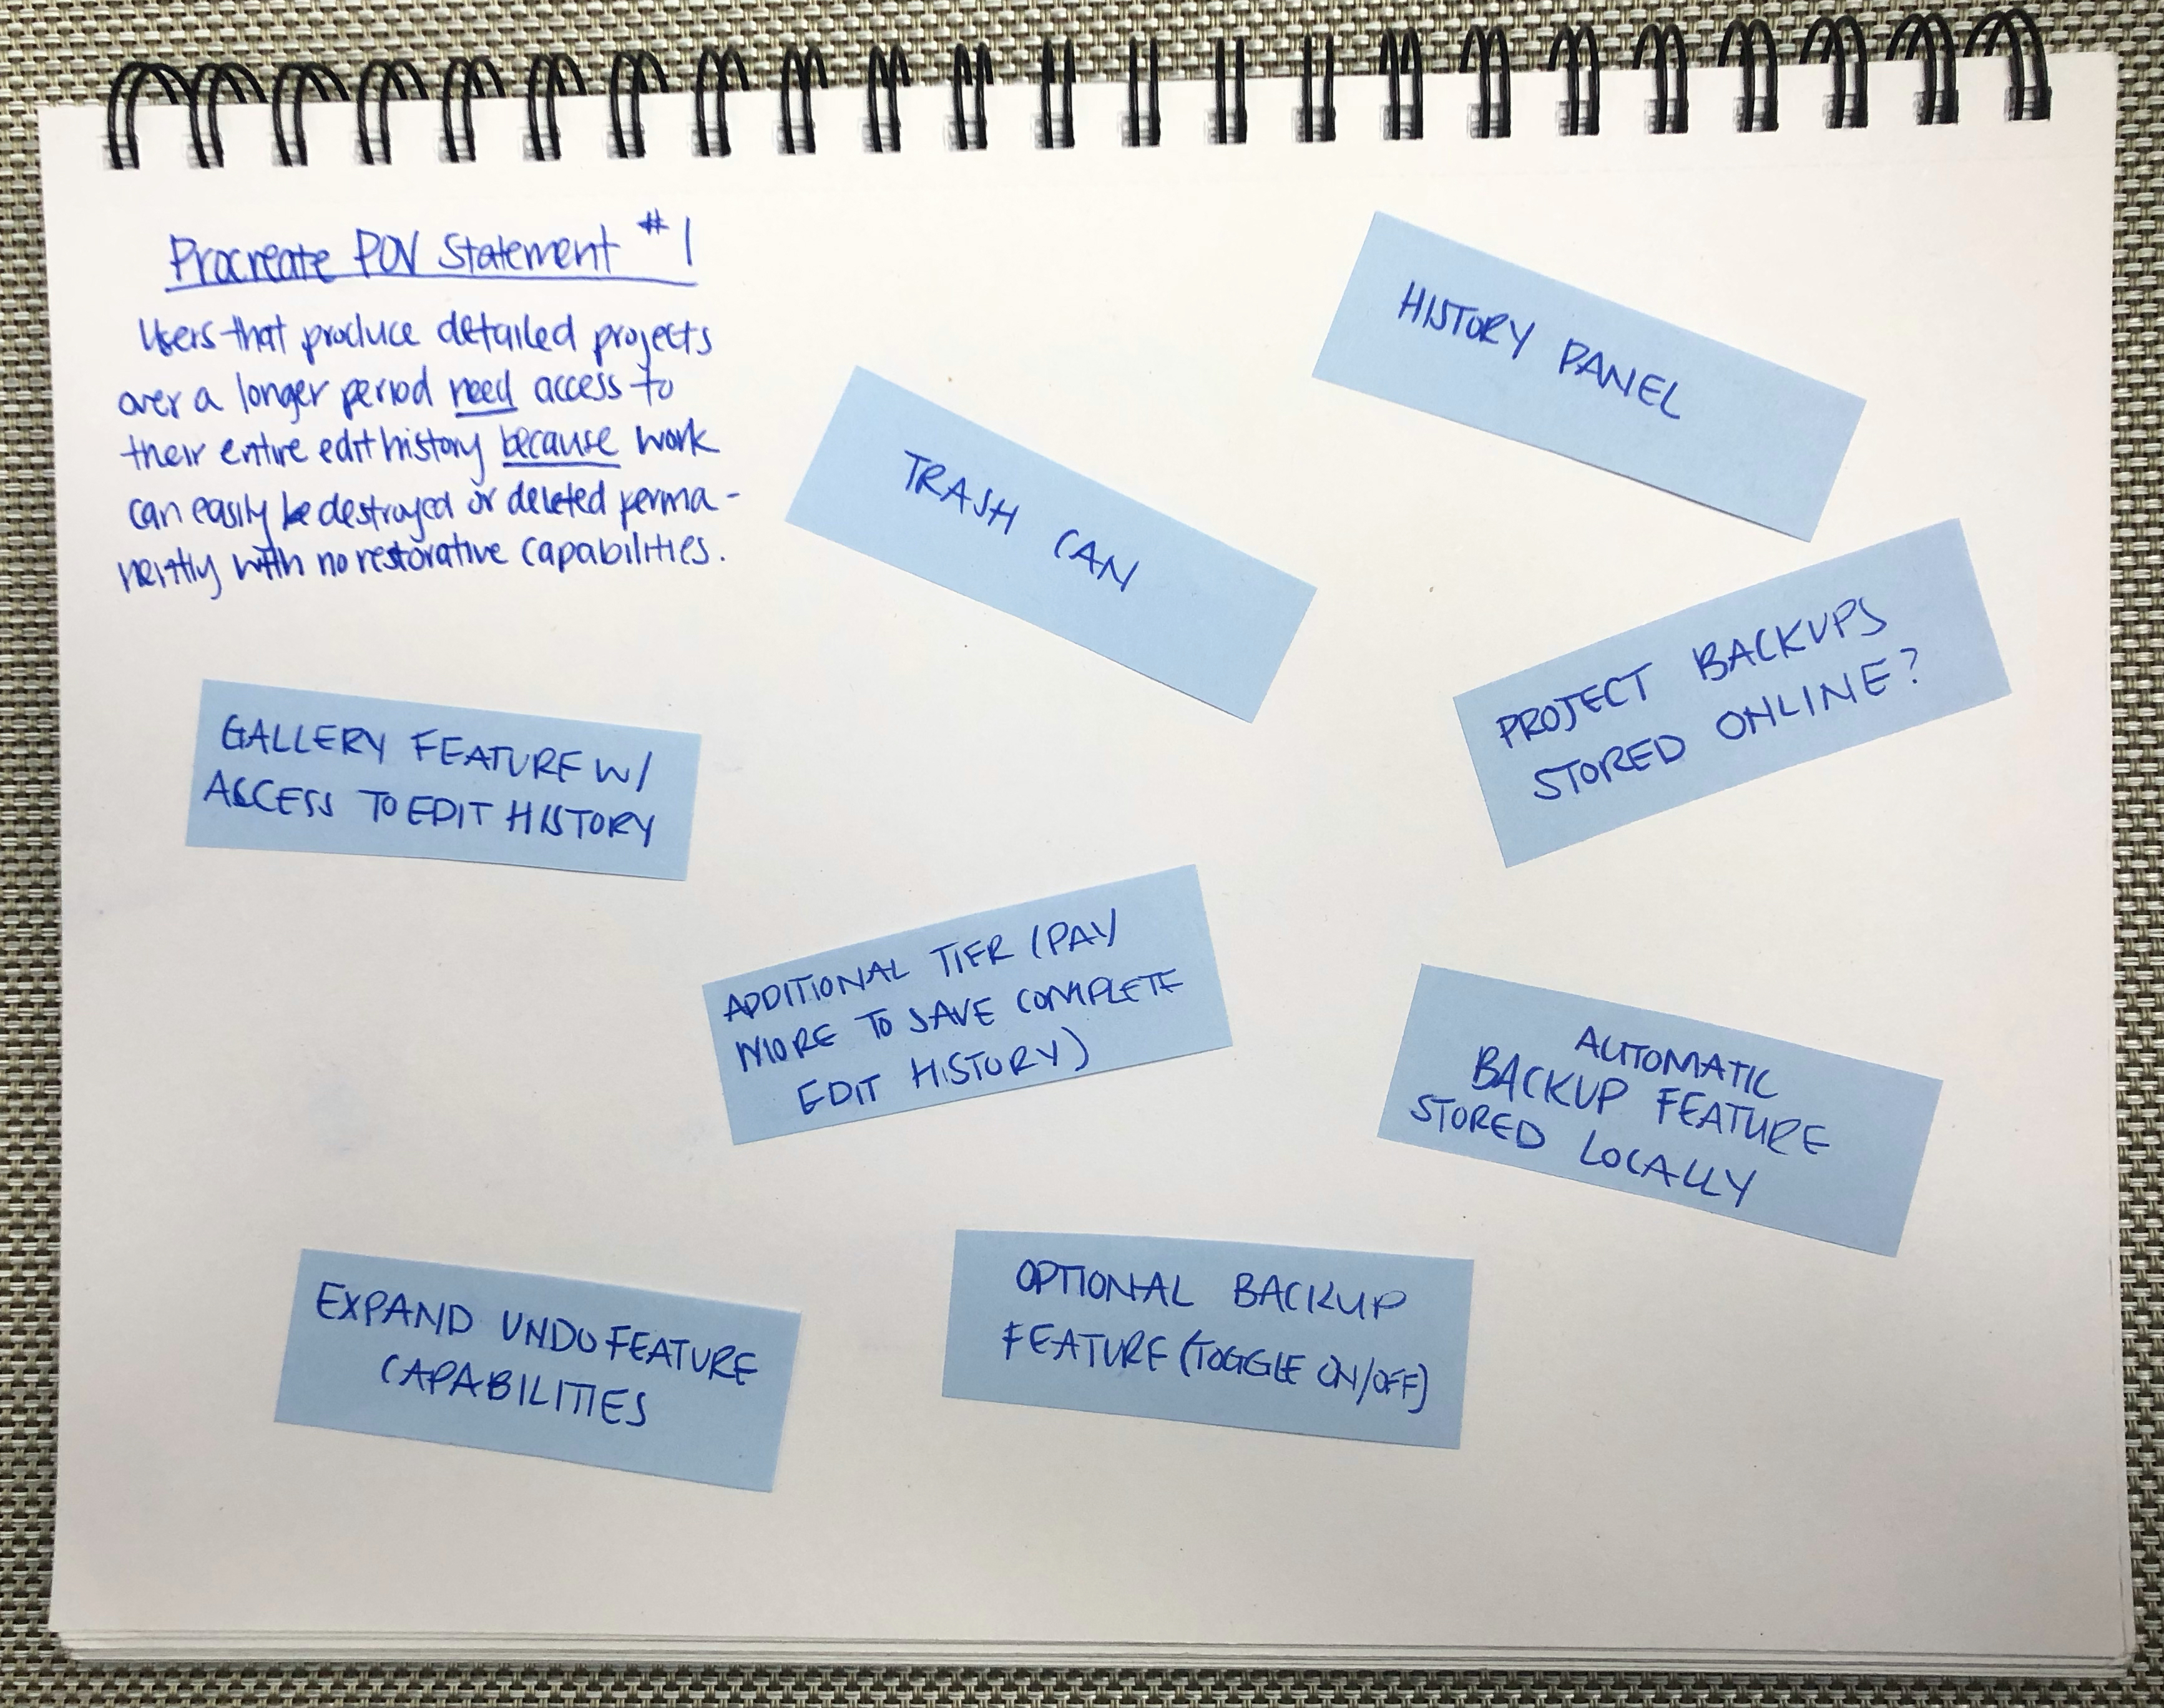 Procreate POV Statement #1
Users that produce detailed projects
over a longer period need access to
their entire edit history because work
can easily be destroyed or deleted perma-
nently with no restorative capabilities.
HISTORY PANEL
TRASH CAN
PROJECT BACKUPS
STORED ONLINE?
GALLERY FEATURE W/
ACCESS TO EDIT HISTORY
ADDITIONAL TIER (PAY
MORE TO SAVE COMPLETE
EDIT HISTORY)
AUTOMATIC
BACKUP FEATURE
STORED LOCALLY
EXPAND UNDO FEATURE
CAPABILITIES
OPTIONAL BACKUP
FEATURE (TOGGLE ON/OFF)